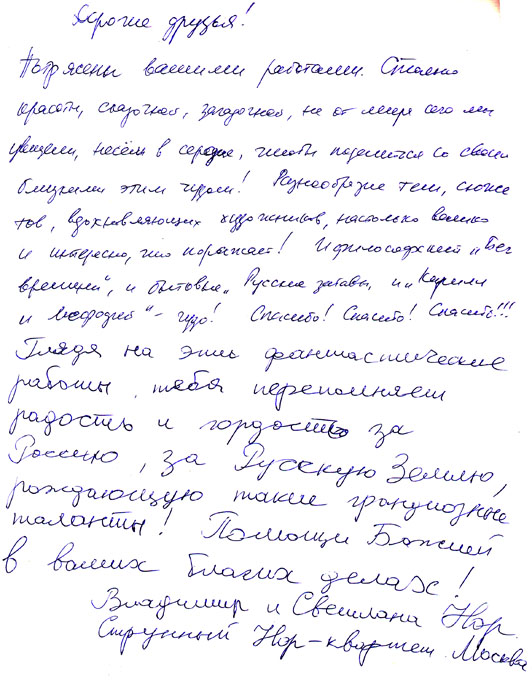 Дорогие друзья!
Потрясены вашими работами. Столько
красоты, сказочной, загадочной, не от мира сего мы
увидели, несём в сердце, чтобы поделится со своими
близкими этим чудом! Разнообразие тем, сюже
тов, вдохновляющих художников, настолько велико
и интересно, что поражает! И философский „Бег
времени", и бытовые „Русские забавы, и „Кирилл
и Мефодий" – чудо! Спасибо! Спасибо! Спасибо!!!
Глядя на эти фантастические
работы тебя переполняет
радость и гордость за
Россию, за Русскую Землю,
рождающую такие грандиозные
таланты! Помощи Божией
в ваших благих делах!
Владимир и Светлана Нор.
Струнный Нор-квартет. Москва